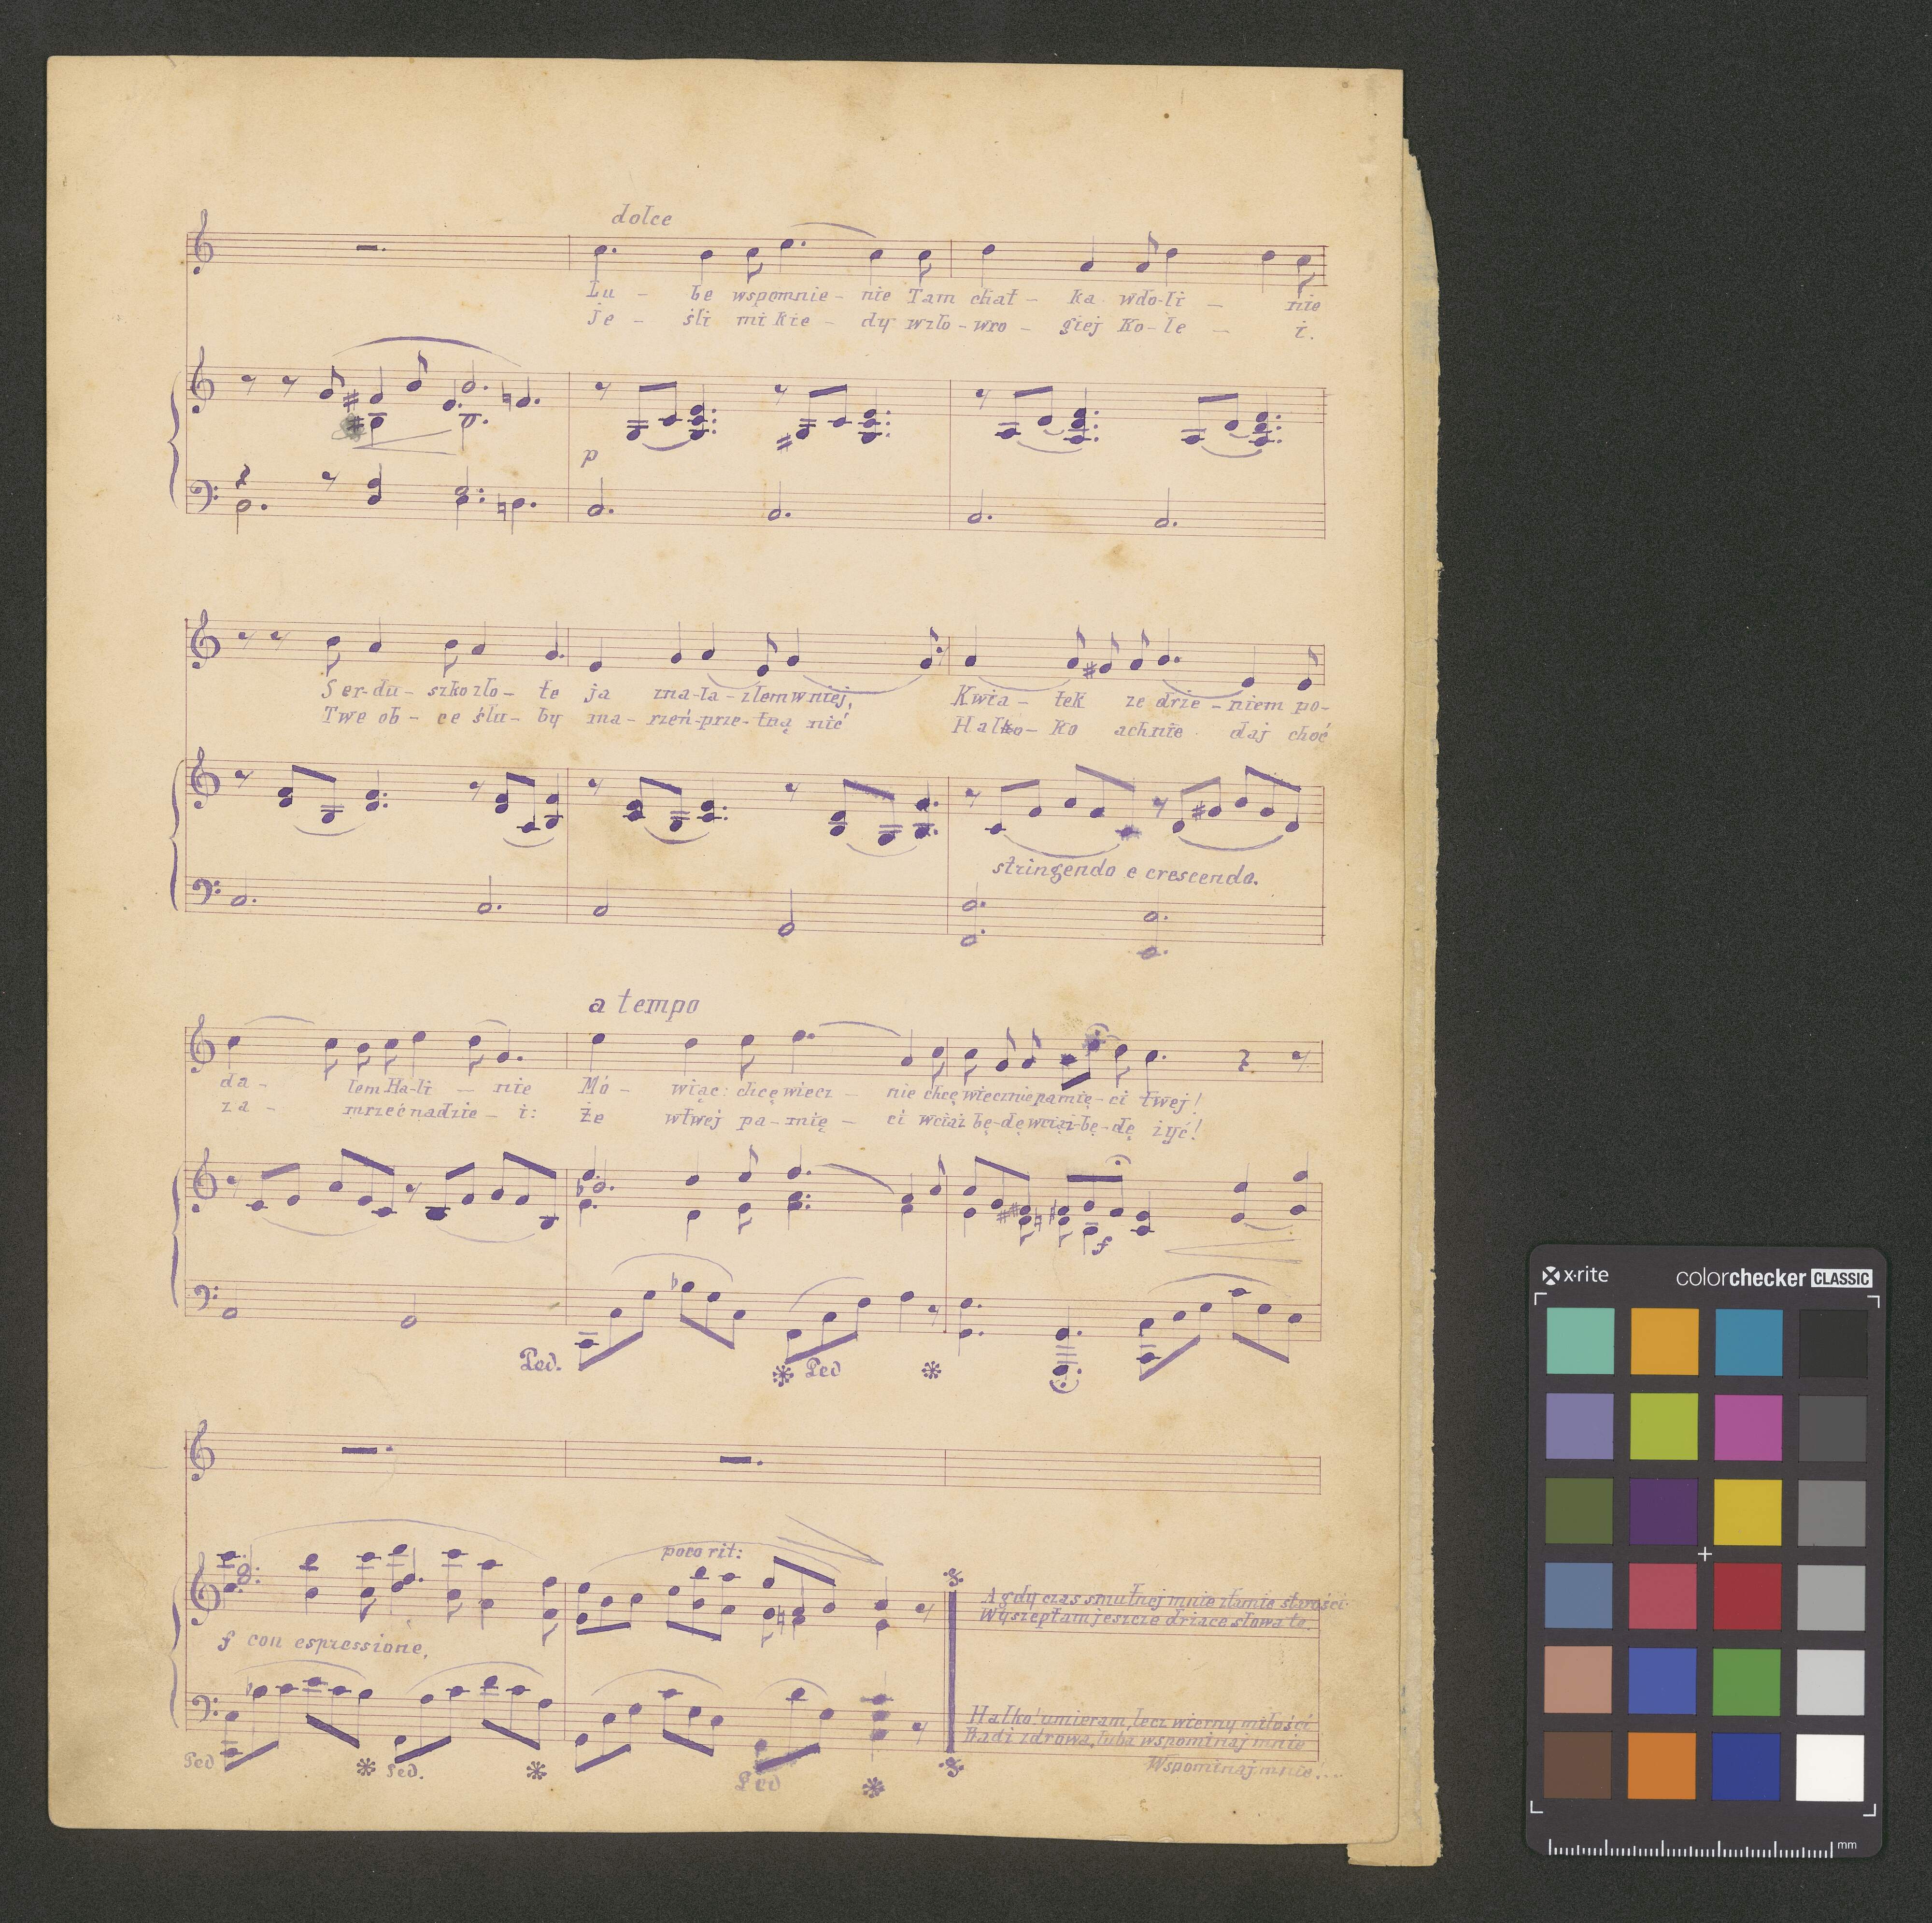 dolce
Lu - be wspomnie - nie Tam chat - ka wdo-li - nie
je - śli mi kie - dy wzło - wro - giej Ko - le - i.
p
Ser-du - szko zło - te ja zna-la - złem w niej,
Twe ob - ce ślu - by ma - rzeń-prze-tną nić
Kwia - tek ze drże - niem po-
Hal - ko achnie daj choć
stringendo e crescendo.
a tempo
da - łem Ha-li - nie Mó - wiąc: chcę wiecz - nie chcę wiecznie pamię - ci twej!
za - mrzeć nadzie - i: że wtwej pa - mię - ci wciąż bę-dę wciąż-bę-dę żyć!
f
Ped. Ped
poco rit:
f con espressione,
A gdy czas smutnej mnie złamie starości
Wyszeptam jeszcze drżące słowa te.
Halko! umieram, lecz wierny miłości
Bądź zdrowa, luba wspominaj mnie
Wspominaj mnie....
Ped Ped. Ped
x-rite colorchecker CLASSIC
mm